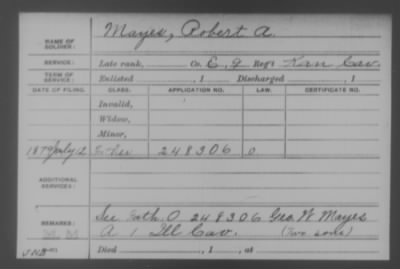 NAME OF SOLDIER: Mayes, Robert A.
SERVICE: Late rank, Co. E. 9 Reg't Kan Cav.
TERM OF SERVICE: Enlisted , 1 Discharged , 1
DATE OF FILING. CLASS. APPLICATION NO. LAW. CERTIFICATE NO.
Invalid,
Widow,
Minor,
1879 July 2 Father 248306 O
ADDITIONAL SERVICES:
REMARKS: See Fath. O 248306 Geo. W. Mayes
A 1 Ill Cav. (Two sons)
Died , 1 , at